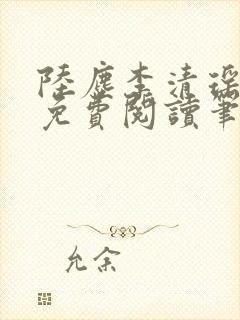 陸塵李清瑤
免費閱讀筆
允余